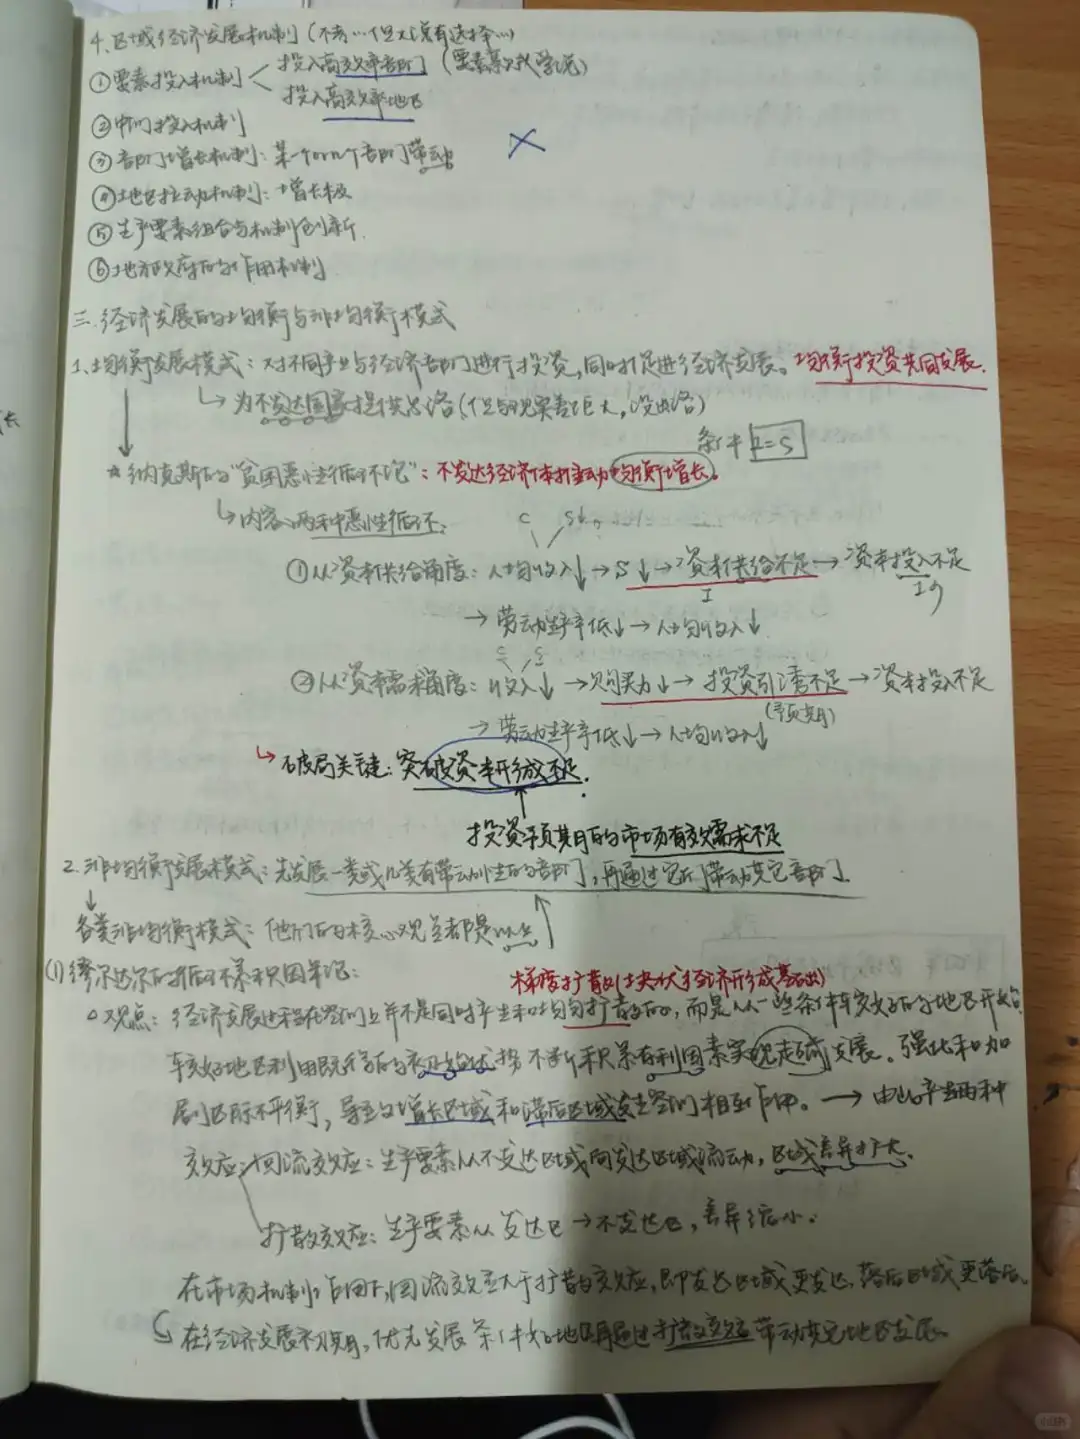 4.区域经济发展机制(不考…但大概有选择…)
①要素投入机制 投入高效率部门(要素系数学说)
投入高效率地区
②中间投入机制
③部门增长机制:某一个or几个部门带动
④地区拉动机制:增长极
⑤生产要素组合与机制创新
⑥地方政府的作用机制
三.经济发展的均衡与非均衡模式
1、均衡发展模式:对不同产业与经济部门进行投资,同时促进经济发展。均衡投资共同发展.
↳为不发达国家提供思路(但与现实差距巨大,没出路)
条件 I=S
*纳克斯的"贫困恶性循环论":不发达经济体推动均衡增长。
↳内容:两种恶性循环:
C S
①从资本供给角度:人均收入↓→S↓→资本供给不足→资本投入不足
I
→劳动生产率低↓→人均收入↓
②从资本需求角度:收入↓→购买力↓→投资引诱不足→资本投入不足
(预期)
→劳动生产率低↓→人均收入↓
↳破局关键:突破资本形成不足.
投资预期的市场有效需求不足
2.非均衡发展模式:先发展一类或几类有带动性的部门,再通过它们带动其它部门.
各类非均衡模式:他们的核心观点都是以上
(1)缪尔达尔的循环累积因果论:
梯度扩散
观点:经济发展过程在空间上并不是同时产生和均匀扩散的,而是从一些条件较好的地区开始
较好地区利用既得的初始优势不断积累有利因素实现超前发展。强化和加
剧区际不平衡,导致增长区域和滞后区域发生空间相互作用。→由此产生两种
效应:回流效应:生产要素从不发达区域向发达区域流动,区域差异扩大.
扩散效应:生产要素从发达区→不发达区,差异缩小.
在市场机制作用下,回流效应大于扩散效应,即发达区域更发达,落后区域更落后。
在经济发展初期,优先发展条件好地区,再通过扩散效应带动其它地区发展。